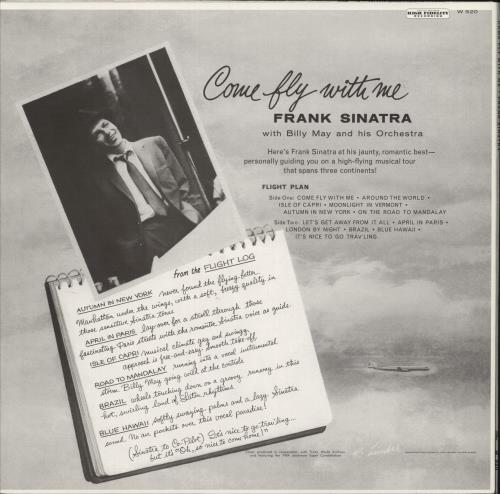 HIGH FIDELITY
RECORDING
W 920
Come fly with me
FRANK SINATRA
with Billy May and his Orchestra
Here's Frank Sinatra at his jaunty, romantic best—
personally guiding you on a high-flying musical tour
that spans three continents!
FLIGHT PLAN
Side One: COME FLY WITH ME • AROUND THE WORLD •
ISLE OF CAPRI • MOONLIGHT IN VERMONT •
AUTUMN IN NEW YORK • ON THE ROAD TO MANDALAY
Side Two: LET'S GET AWAY FROM IT ALL • APRIL IN PARIS •
LONDON BY NIGHT • BRAZIL • BLUE HAWAII •
IT'S NICE TO GO TRAV'LING
from the FLIGHT LOG
AUTUMN IN NEW YORK never found the flying better.
Manhattan under the wings, with a soft, breezy quality in
those sensitive Sinatra tones
APRIL IN PARIS lay-over for a stroll through those
fascinating Paris streets with the romantic Sinatra voice as guide.
ISLE OF CAPRI musical climate gay and swingy,
approach is free-and-easy, smooth take-off
ROAD TO MANDALAY running into a vocal instrumental
storm. Billy May going wild at the controls
BRAZIL wheels touching down on a groovy runway in this
hot, swirling land of Latin rhythms
BLUE HAWAII softly swaying palms and a lazy Sinatra
sound. No air pockets over this vocal paradise!
(Sinatra to Co-Pilot) It's nice to go trav'ling...
but it's "Oh, so nice to come home!"